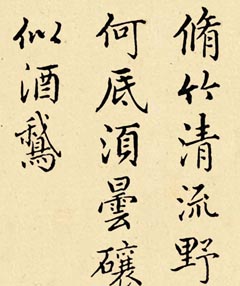 脩竹清流野
何底須曇礲
似酒鵞